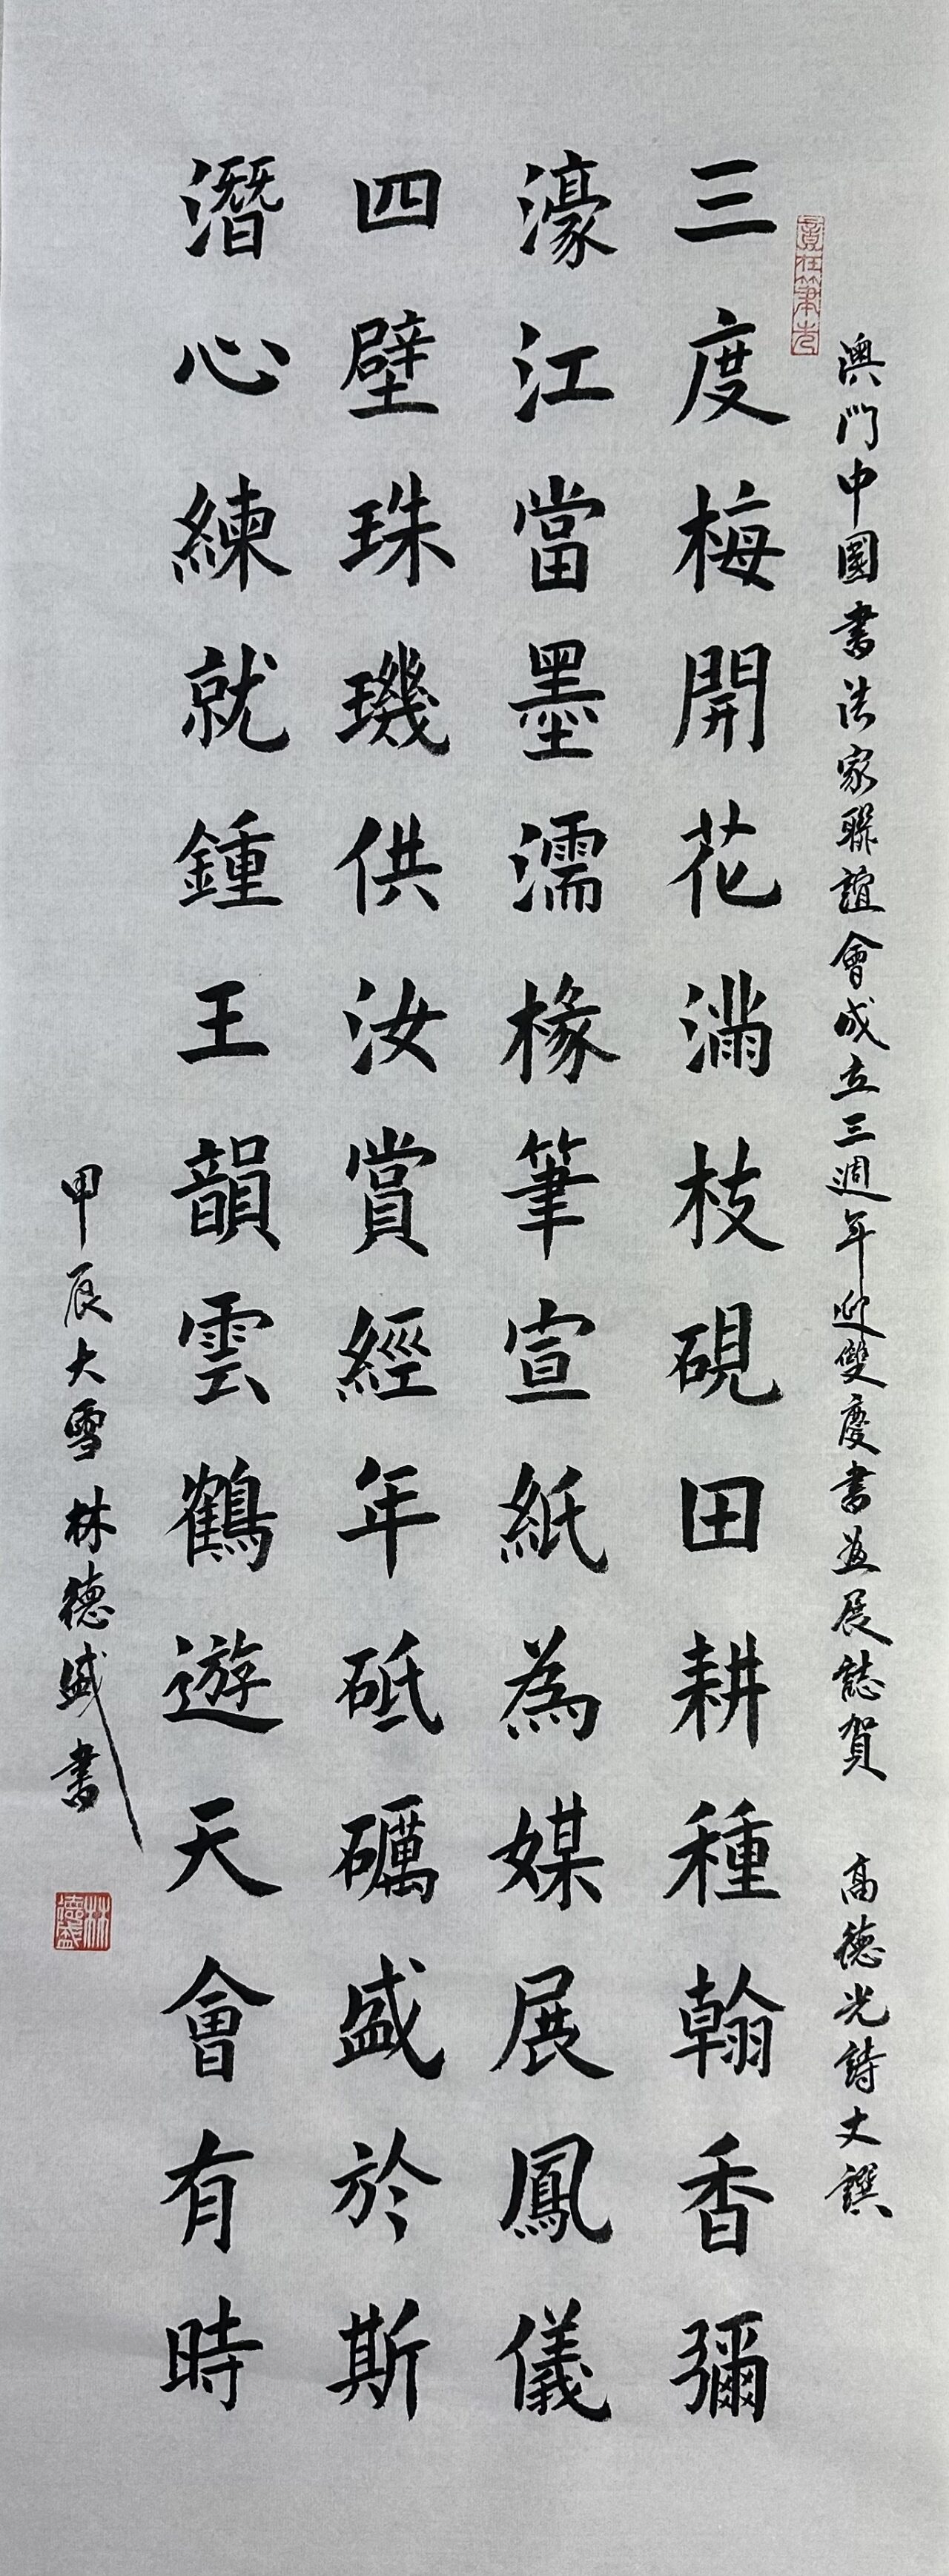 澳門中國書法家聯誼會成立三週年迎雙慶書畫展誌賀 高德光詩文撰
意在筆先
三度梅開花滿枝硯田耕種翰香彌
濠江當墨濡椽筆宣紙為媒展鳳儀
四壁珠璣供汝賞經年砥礪盛於斯
潛心練就鍾王韻雲鶴遊天會有時
甲辰大雪林德盛書
林德盛